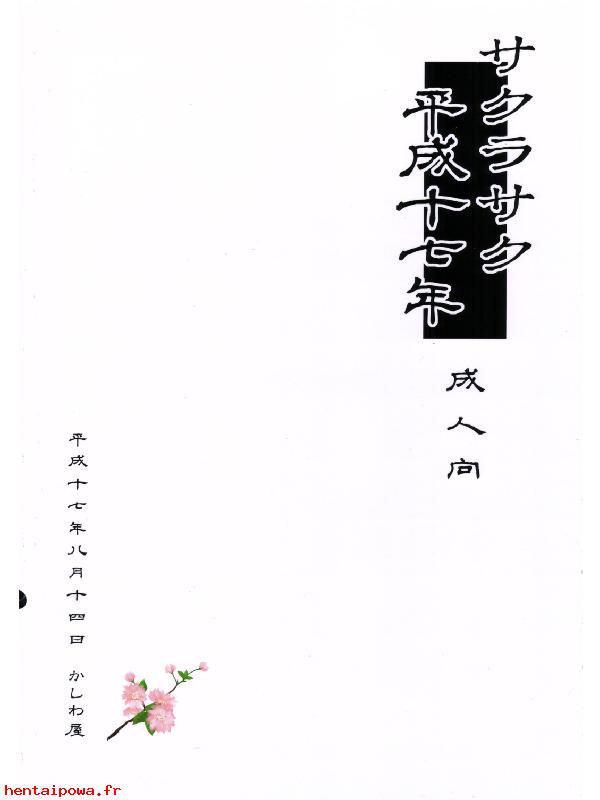 サクラサク
平成十七年
成人向
平成十七年八月十四日 かしわ屋
hentaipowa.fr